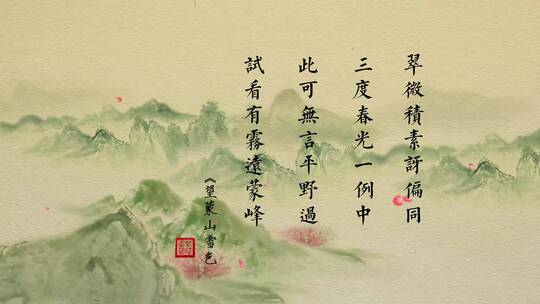 翠微積素訝偏同
三度春光一例中
此可無言平野過
試看有霧遠蒙峰
《望蒙山雪色